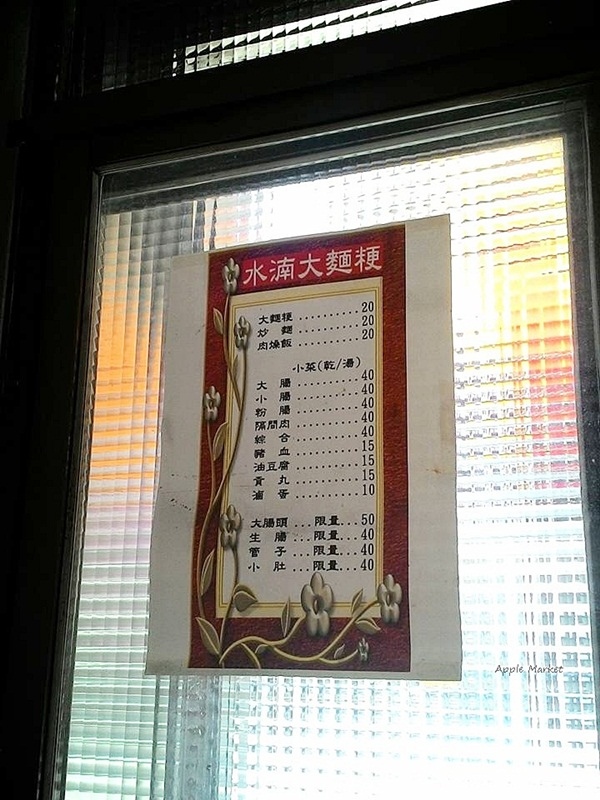 水湳大麵粳
大麵粳..........20
炒麵..........20
肉燥飯..........20
小菜(乾/湯)
大腸..........40
小腸..........40
粉腸..........40
隔間肉..........40
綜合..........40
豬血..........15
油豆腐..........15
貢丸..........15
滷蛋..........10
大腸頭...限量...50
生腸...限量...40
管子...限量...40
小肚...限量...40
Apple Market